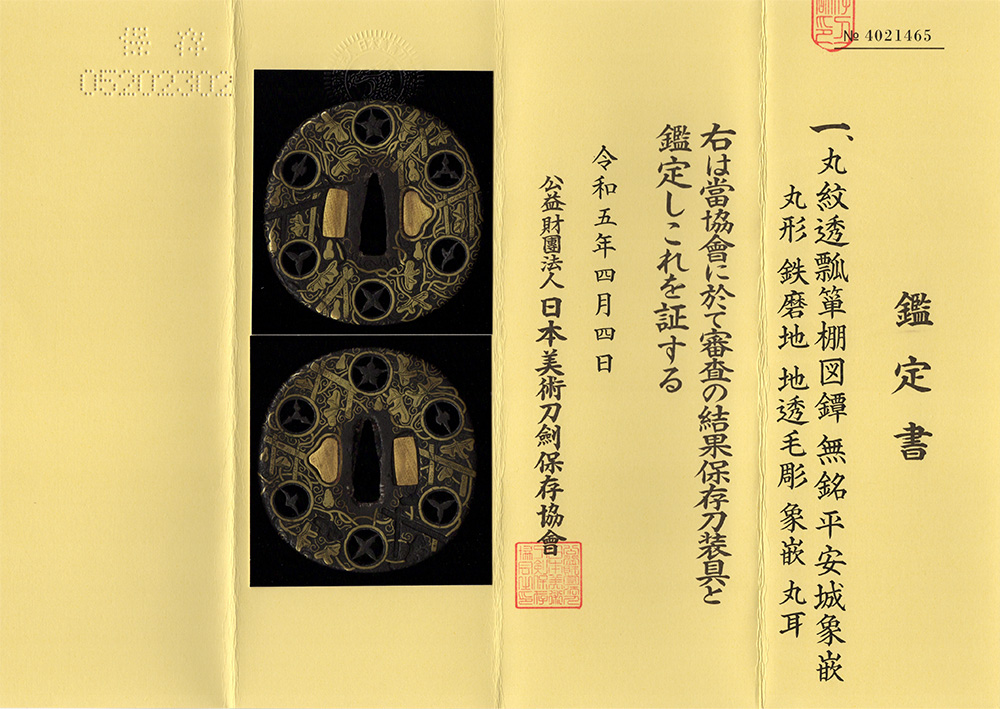 № 4021465
鑑定書
一、丸紋透瓢箪棚図鐔 無銘 平安城象嵌
丸形 鉄磨地 地透毛彫 象嵌 丸耳
右は當協會に於て審査の結果保存刀装具と
鑑定しこれを証する
令和五年四月四日
公益財團法人 日本美術刀劍保存協會
保存
05202302